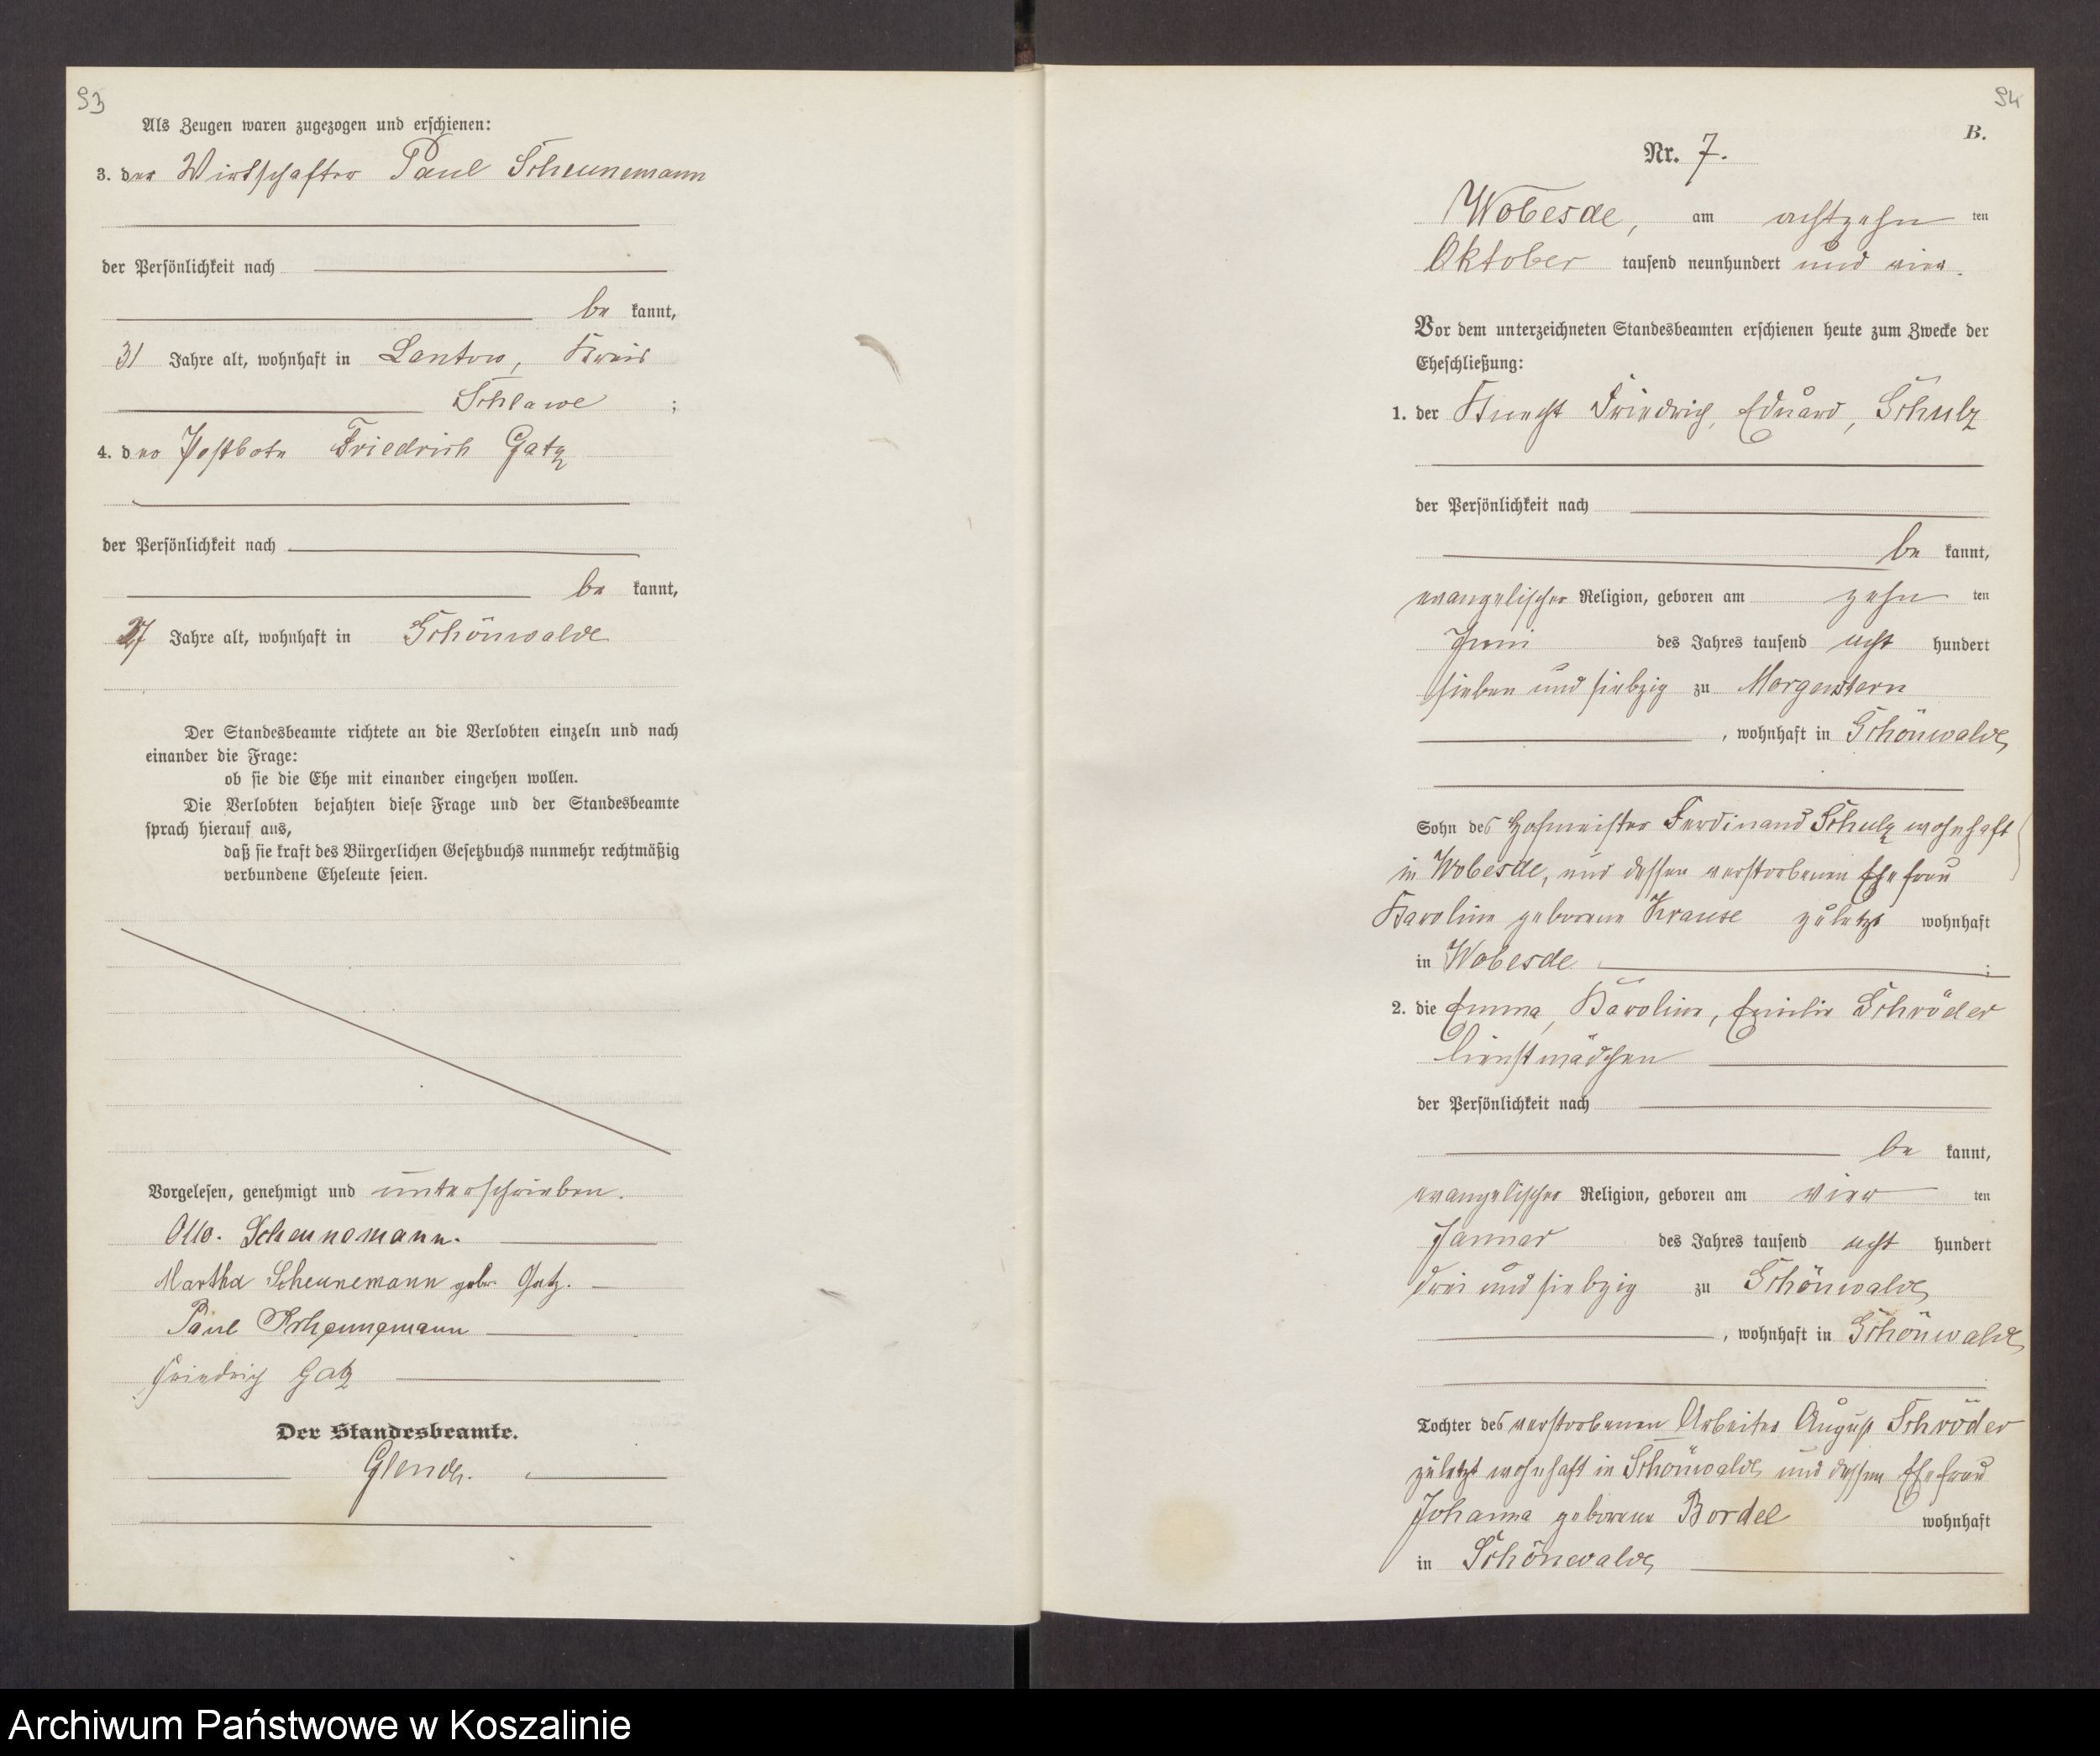 93
Als Zeugen waren zugezogen und erschienen:
3. der Wirtschafter Paul Scheunemann
der Persönlichkeit nach
be kannt,
31 Jahre alt, wohnhaft in Lantow, Kreis
Schlawe ;
4. der Postbote Friedrich Gatz
der Persönlichkeit nach
be kannt,
27 Jahre alt, wohnhaft in Schönwalde
Der Standesbeamte richtete an die Verlobten einzeln und nach
einander die Frage:
ob sie die Ehe mit einander eingehen wollen.
Die Verlobten bejahten diese Frage und der Standesbeamte
sprach hierauf aus,
daß sie kraft des Bürgerlichen Gesetzbuchs nunmehr rechtmäßig
verbundene Eheleute seien.
Vorgelesen, genehmigt und unterschrieben.
Otto. Scheunemann.
Martha Scheunemann geb. Gatz.
Paul Scheunemann
Friedrich Gatz
Der Standesbeamte.
94
B.
Nr. 7.
Wobesde, am achtzehn ten
Oktober tausend neunhundert und vier.
Vor dem unterzeichneten Standesbeamten erschienen heute zum Zwecke der
Eheschließung:
1. der Knecht Friedrich, Eduard, Schulz
der Persönlichkeit nach
be kannt,
evangelischer Religion, geboren am zehn ten
Juni des Jahres tausend acht hundert
sieben und siebzig zu Morgenstern
, wohnhaft in Schönwalde
Sohn des Hofmeister Ferdinand Schulz wohnhaft
in Wobesde, und dessen verstorbenen Ehefrau
Karoline geborene Krause zuletzt wohnhaft
in Wobesde ;
2. die Emma, Karoline, Emilie Schröder
Dienstmädchen
der Persönlichkeit nach
be kannt,
evangelischer Religion, geboren am vier ten
Januar des Jahres tausend acht hundert
drei und siebzig zu Schönwalde
, wohnhaft in Schönwalde
Tochter des verstorbenen Arbeiter August Schröder
zuletzt wohnhaft in Schönwalde und dessen Ehefrau
Johanna geborene Bordel wohnhaft
in Schönwalde
Archiwum Państwowe w Koszalinie